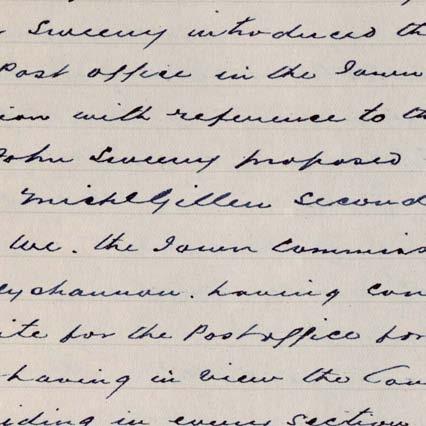 Sweeny introduced th
Post office in the Town
ion with reference to th
John Sweeny proposed
Michl Gillen Second
We. the Town Commiss
eyshannon. having con
ite for the Post office for
having in view the Con
iding in every section